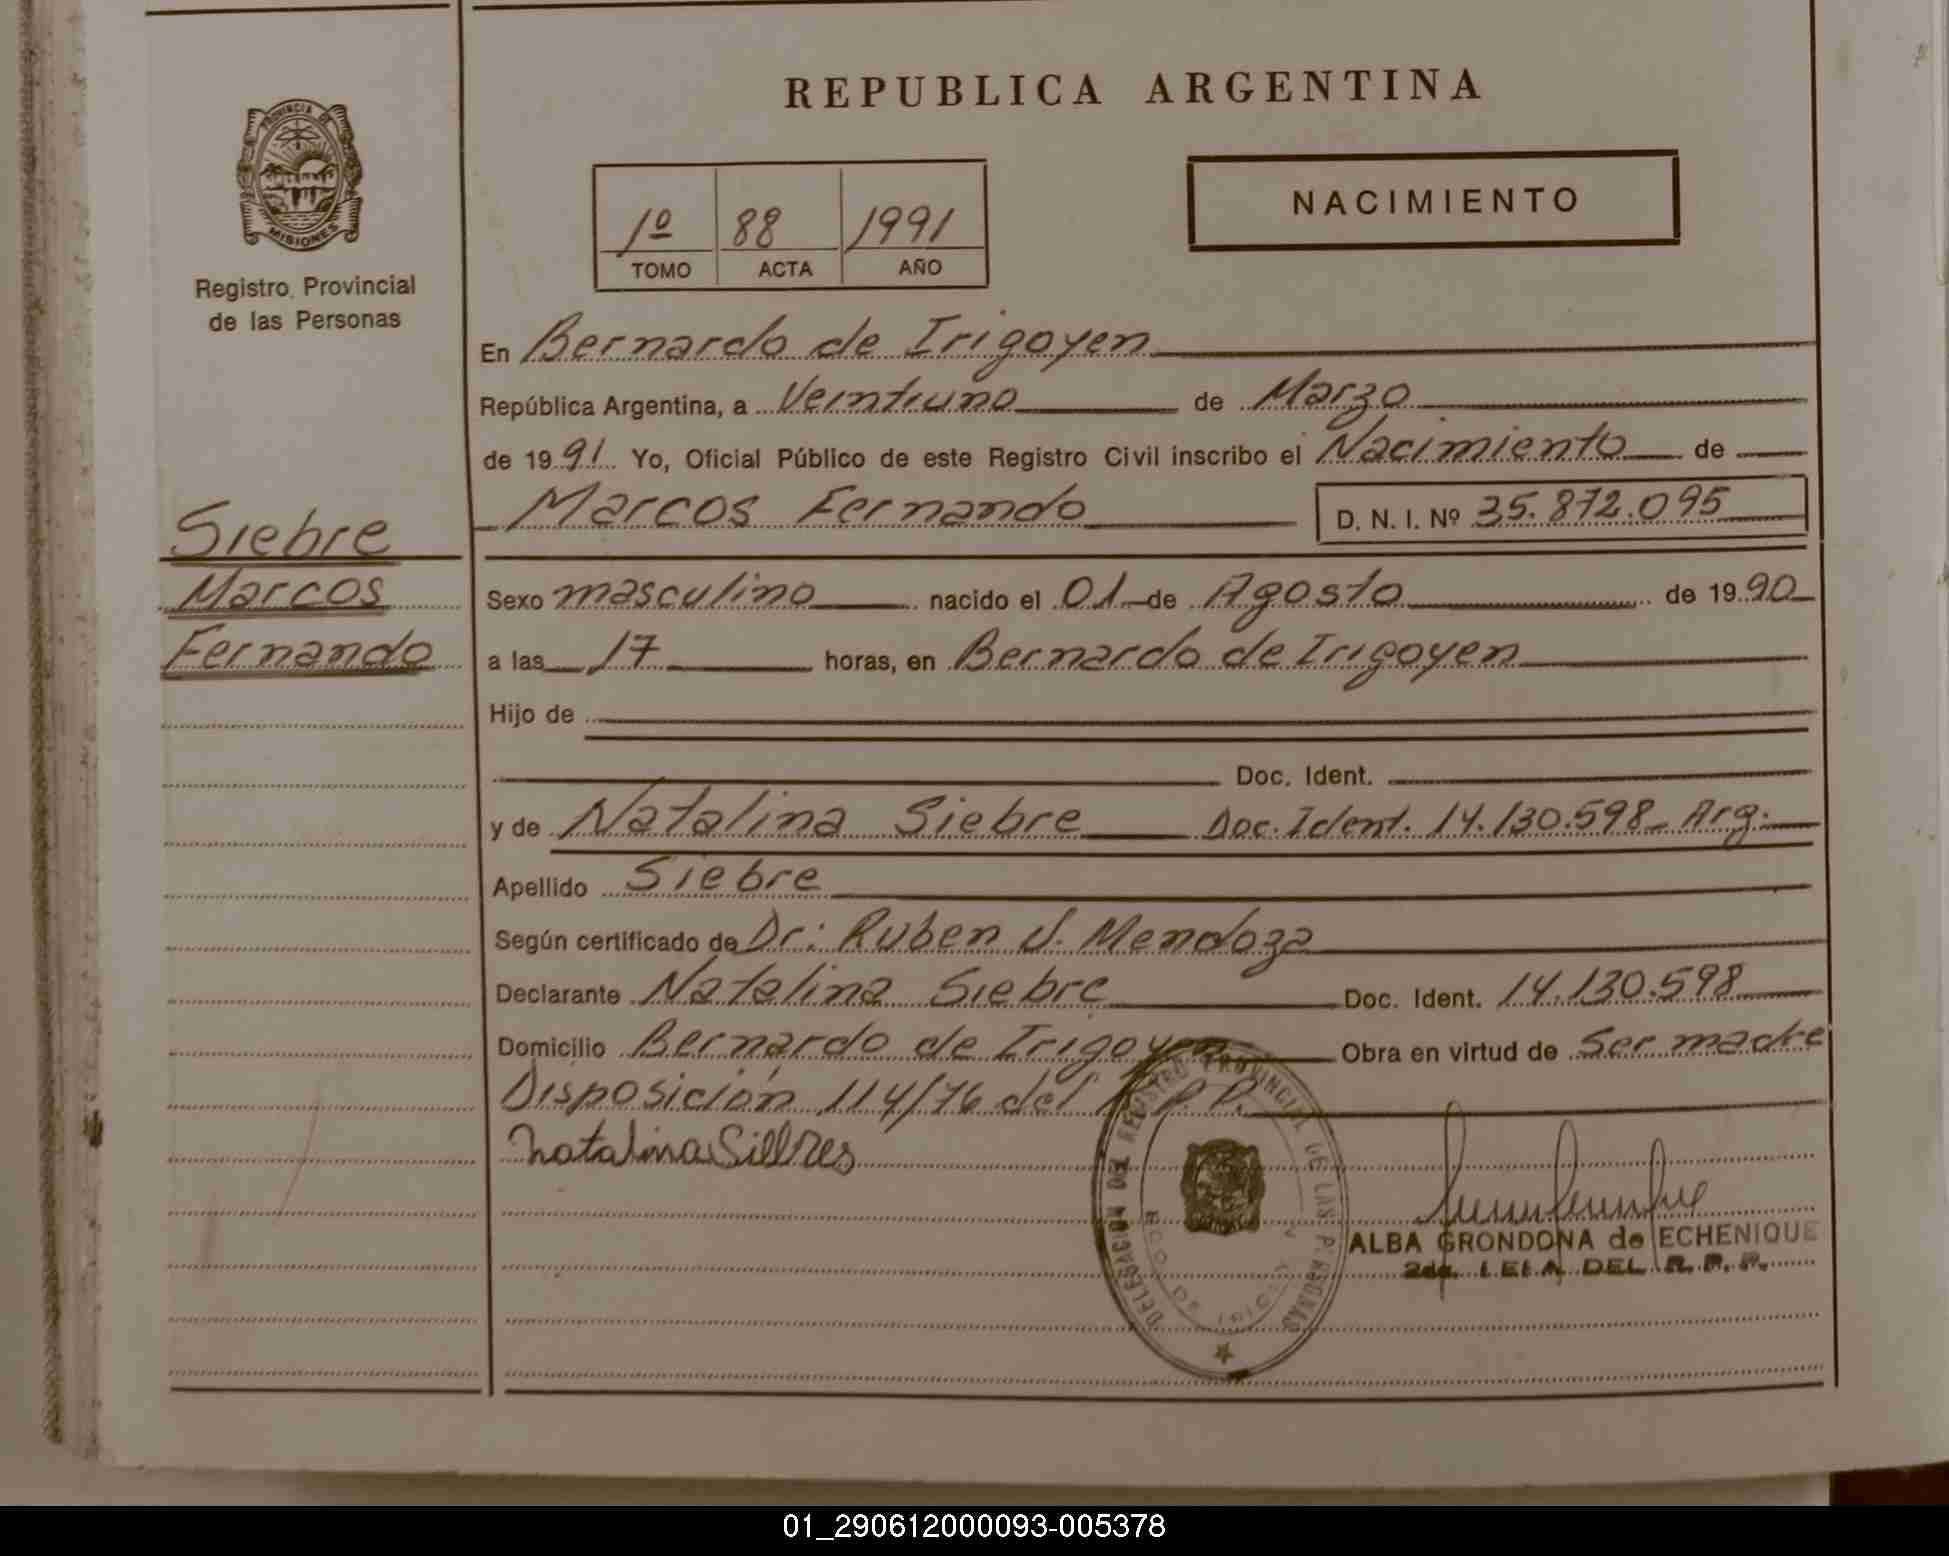 REPUBLICA ARGENTINA
PROVINCIA DE
MISIONES
Registro Provincial
de las Personas
1º 88 1991
TOMO ACTA AÑO
NACIMIENTO
En Bernardo de Irigoyen
República Argentina, a Veintiuno de Marzo
de 1991 Yo, Oficial Público de este Registro Civil inscribo el Nacimiento de
Marcos Fernando D. N. I. Nº 35.872.095
Siebre
Marcos
Fernando
Sexo masculino nacido el 01 de Agosto de 1990
a las 17 horas, en Bernardo de Irigoyen
Hijo de
Doc. Ident.
y de Natalina Siebre Doc. Ident. 14.130.598 Arg.
Apellido Siebre
Según certificado de Dr: Ruben J. Mendoza
Declarante Natalina Siebre Doc. Ident. 14.130.598
Domicilio Bernardo de Irigoyen Obra en virtud de Ser madre
Disposición 114/76 del R.P.P.
Natalina
DELEGACION DEL REGISTRO PROVINCIAL DE LAS PERSONAS
ALBA GRONDONA de ECHENIQUE
DEL R. P. P.
01_290612000093-005378